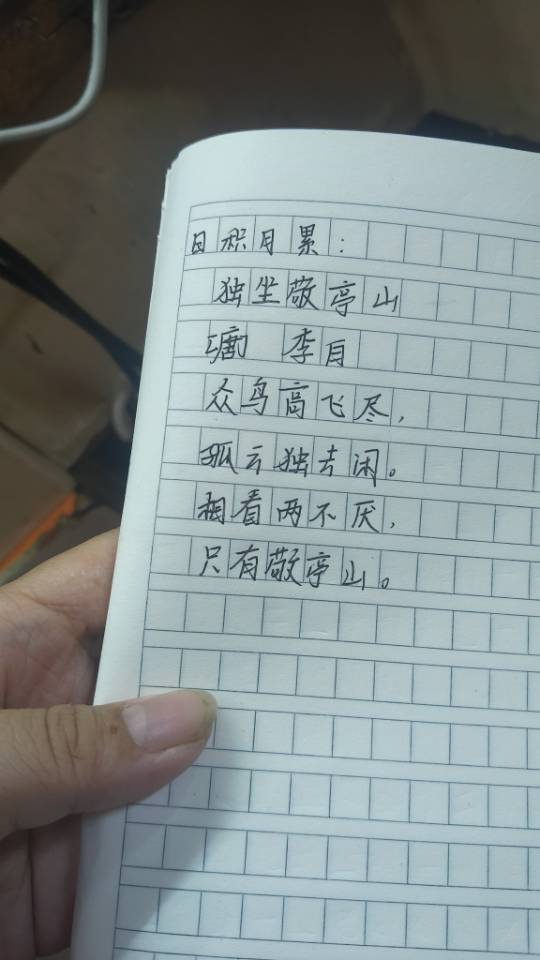 日积月累：
独坐敬亭山
李白
众鸟高飞尽，
孤云独去闲。
相看两不厌，
只有敬亭山。